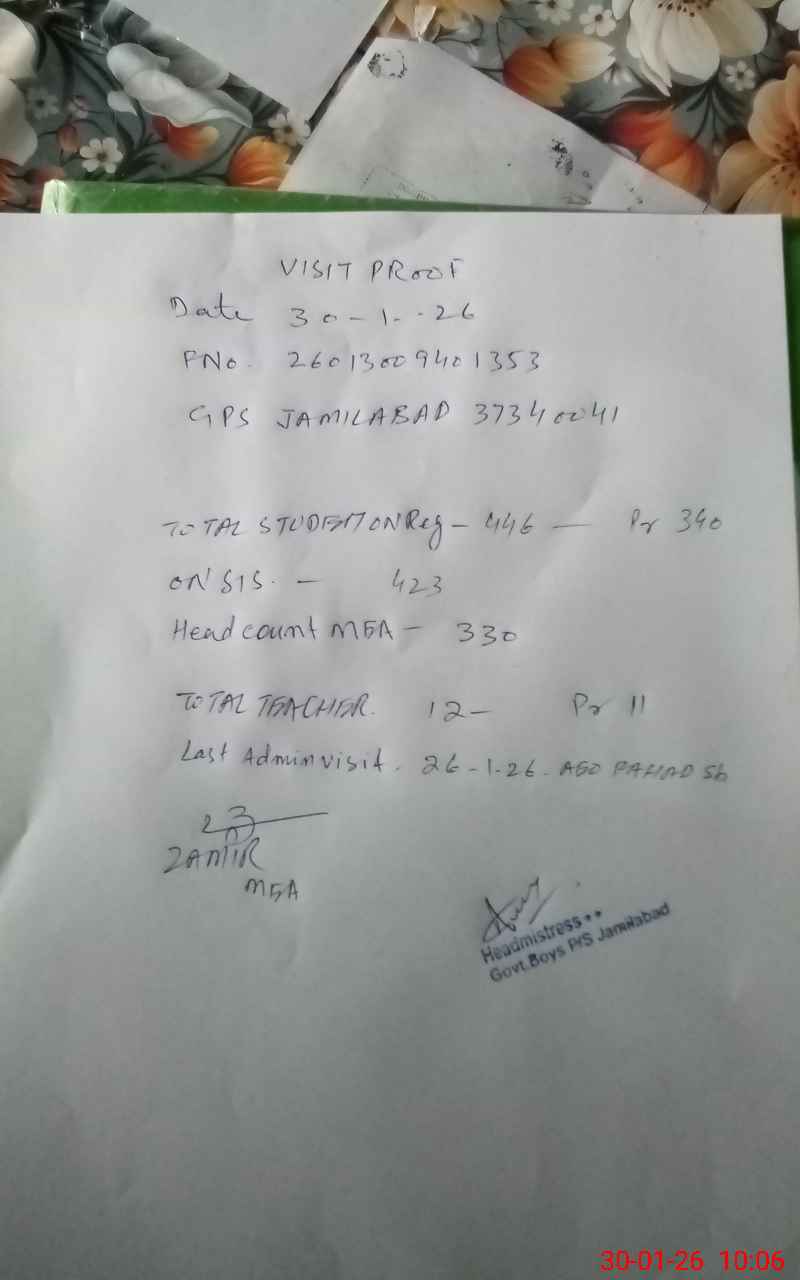 VISIT PROOF
Date 30-1-26
FNo. 26013009401353
GPS JAMILABAD 37340041
TOTAL STUDENT ON Reg - 446 — Pr 340
ON SIS. - 423
Head count MEA - 330
TOTAL TEACHER. 12- Pr 11
Last Admin visit. 26-1-26. AEO FAHAD Sb
ZAMIR
MEA
Headmistress
Govt.Boys P/S Jamilabad
30-01-26 10:06